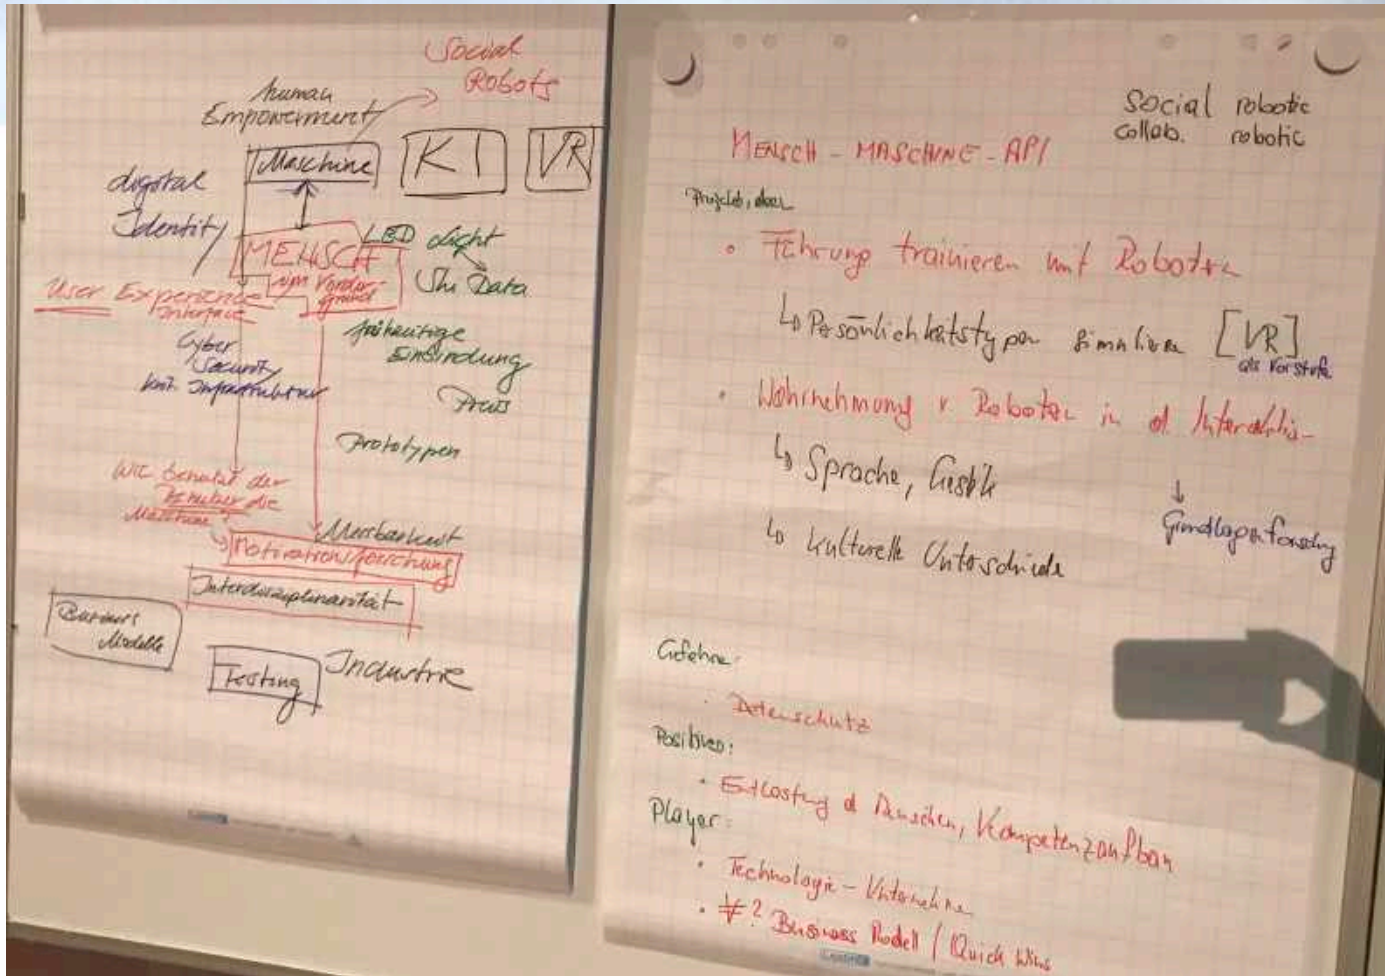 Social
Robots
human
Empowerment
Maschine
KI
VR
digital
Identity
MENSCH
im Vorder-
grund
LED Licht
Data
User Experience
Interface
Cyber
Security
frühzeitige
Einbindung
Preis
Prototypen
Wie benutzt der
Benutzer die
Maschine?
Messbarkeit
Motivationsforschung
Interdisziplinarität
Business
Modelle
Testing
Industrie
social robotic
collab. robotic
MENSCH-MASCHINE-API
• Führung trainieren mit Roboter
↳ Persönlichkeitstypen simulieren [VR]
als Vorstufe
• Wahrnehmung v. Roboter in d. Interaktion
↳ Sprache, Gestik
↳ kulturelle Unterschiede
↓
Grundlagenforschung
Gefahren:
· Datenschutz
Positives:
• Entlastung d Menschen, Kompetenzaufbau
Player:
• Technologie-Unternehmen
• ? Business Modell / Quick Wins